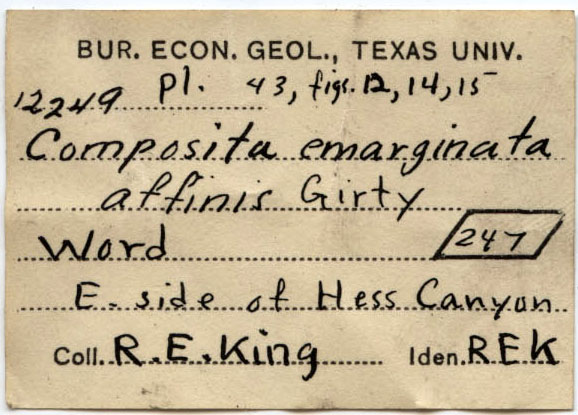 BUR. ECON. GEOL., TEXAS UNIV.
12249 pl. 43, figs. 12, 14, 15
Composita emarginata
affinis Girty
Word 247
E. side of Hess Canyon
Coll. R.E.King Iden. REK